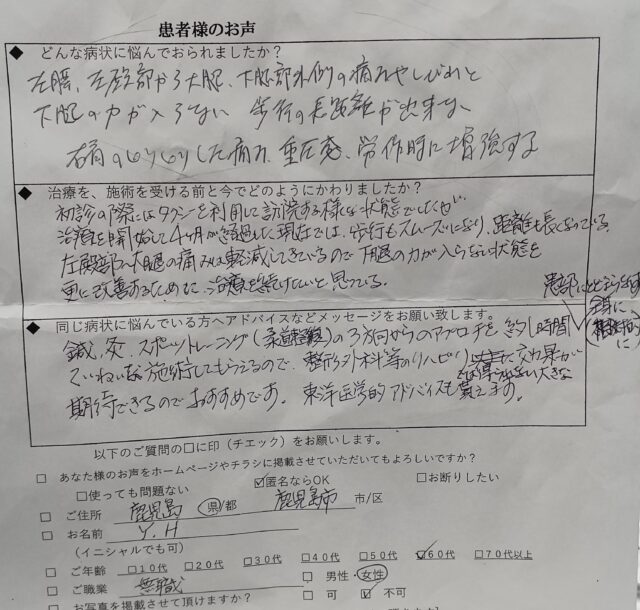 患者様のお声
◆ どんな病状に悩んでおられましたか？
左腰、左殿部から大腿、下腿部外側の痛みやしびれと
下腿の力が入らない 歩行の長距離が出来ない
右肩の した痛み、重圧感、労作時に増強する
◆ 治療を、施術を受ける前と今でどのようにかわりましたか？
初診の際にはタクシーを利用して訪院する様な状態でしたが
治療を開始して4ヶ月が経過した現在では、歩行もスムーズになり、距離も長くなっている
左殿部〜大腿の痛みは軽減してきているので下腿の力が入らない状態を
更に改善するために、治療を続けたいと思っている。
◆ 同じ病状に悩んでいる方へアドバイスなどメッセージをお願い致します。
患部にとどまらず
全身に
に
鍼、灸、スポーツトレーニング( )の3方向からのアプローチを、約1時間
ていねいな施術してもらえるので、整形外科等のリハビリ 大きな効果が
期待できるのでおすすめです。東洋医学的アドバイスも貰えます。
以下のご質問の□に印（チェック）をお願いします。
□ あなた様のお声をホームページやチラシに掲載させていただいてもよろしいですか？
□使っても問題ない ☑匿名ならOK □お断りしたい
□ ご住所 鹿児島 県/都 鹿児島市 市/区
□ お名前 Y.H
（イニシャルでも可）
□ ご年齢 □10代 □20代 □30代 □40代 □50代 ☑60代 □70代以上
□ ご職業 無職 □ 男性・女性
□ お写真を掲載させて頂けますか？ □ 可 ☑ 不可